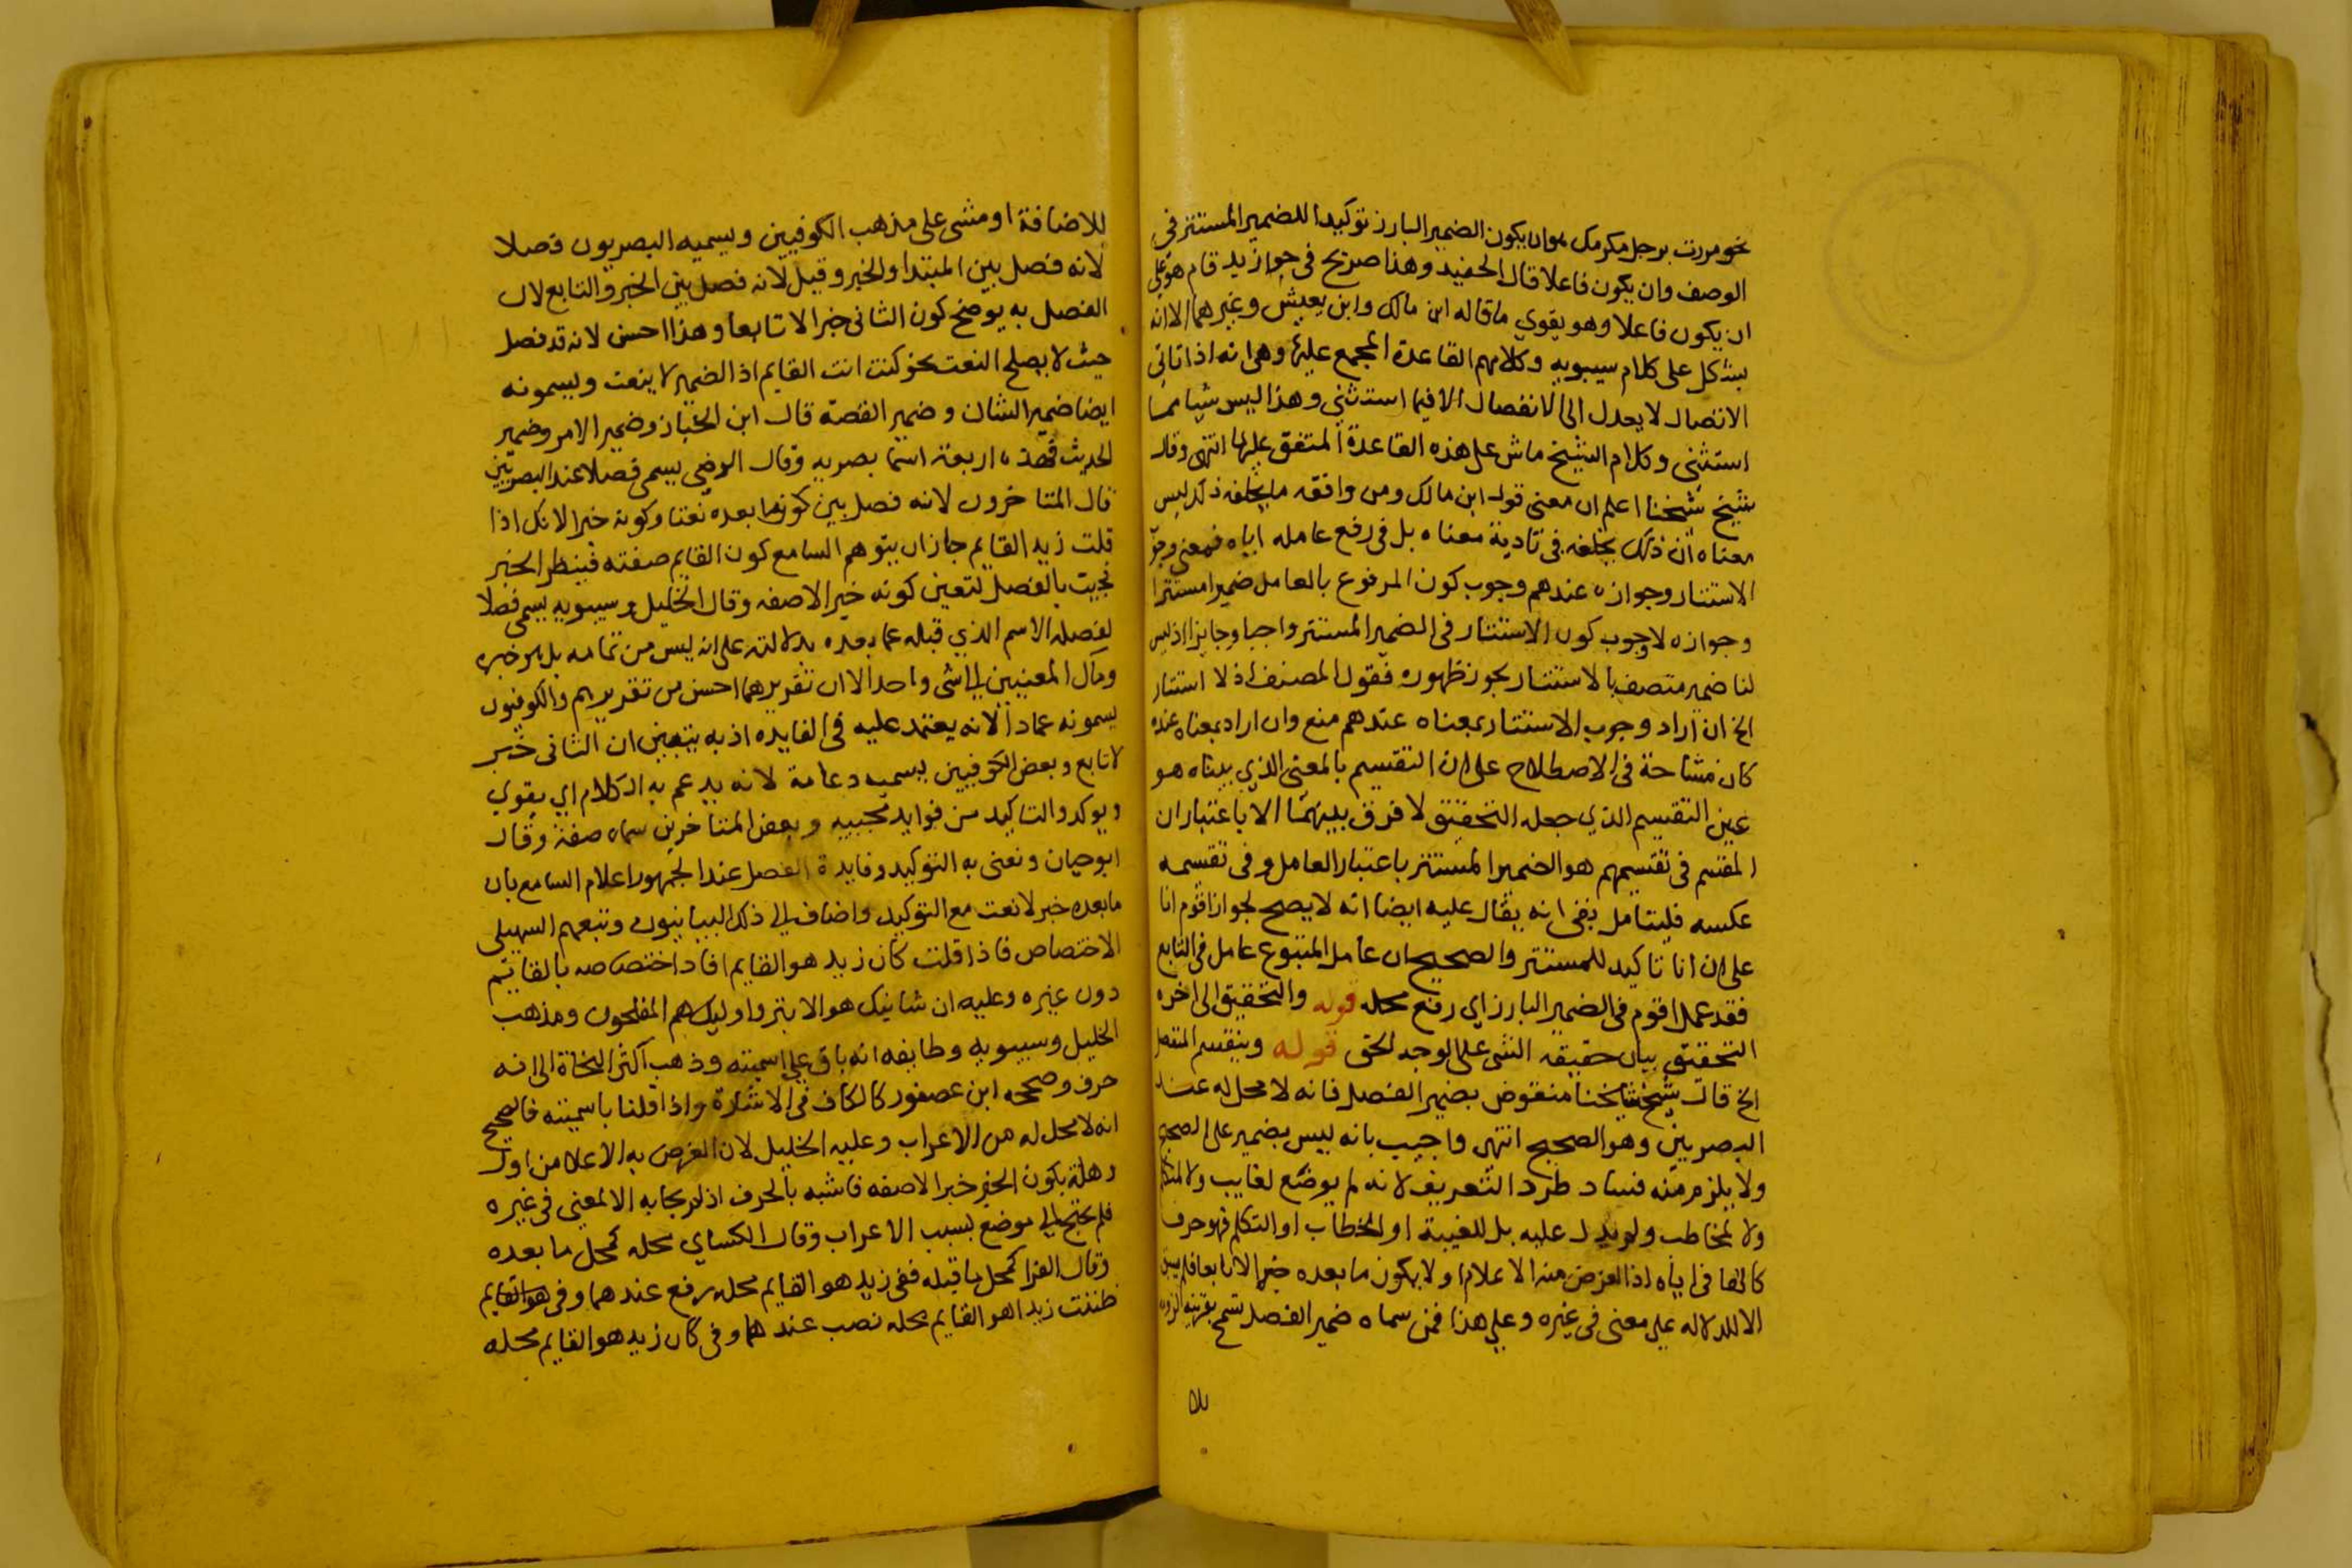 نحو مررت برجل مكرمك هو ان يكون الضمير البارز توكيدا للضمير المستتر في
الوصف وان يكون فاعلا قال الحفيد وهذا صريح في جواز زيد قام هو على
ان يكون فاعلا وهو يقوي ما قاله ابن مالك وابن يعيش وغيرهما الا انه
يشكل على كلام سيبويه وكلامهم القاعدة المجمع عليها وهي انه اذا تاتي
الاتصال لا يعدل الى الانفصال الا فيما استثني وهذا ليس شيا مما
استثني وكلام الشيخ ماش على هذه القاعدة المتفق عليها انتهى وقال
شيخ شيخنا اعلم ان معنى قول ابن مالك ومن وافقه ما يخلفه ذلك ليس
معناه ان ذلك يخلفه في تادية معناه بل في رفع عامله اياه فمعنى وجوب
الاستتار وجوازه عندهم وجوب كون المرفوع بالعامل ضميرا مستترا
وجوازه لا وجوب كون الاستتار في الضمير المستتر واجبا وجايزا اذ ليس
لنا ضمير متصف بالاستتار يجوز ظهوره فقول المصنف اذ لا استتار
الخ ان اراد وجوب الاستتار بمعناه عندهم منع وان اراد بمعناه عنده
كان مشاحة في الاصطلاح على ان التقسيم بالمعنى الذي بيناه هو
عين التقسيم الذي جعله التحقيق لا فرق بينهما الا باعتبار ان
المقسم في تقسيمهم هو الضمير المستتر باعتبار العامل وفي تقسيمه
عكسه فليتامل بقي انه يقال عليه ايضا انه لا يصح لجواز اقوم انا
على ان انا تاكيد للمستتر والصحيح ان عامل المتبوع عامل في التابع
فقد عمل اقوم في الضمير البارز اي رفع محله قوله والتحقيق الى اخره
التحقيق بيان حقيقة الشي على الوجه الحق قوله وينقسم المتصل
الخ قال شيخ شيخنا منقوض بضمير الفصل فانه لا محل له عند
البصريين وهو الصحيح انتهى واجيب بانه ليس بضمير على الصحيح
ولا يلزم منه فساد طرد التعريف لانه لم يوضع لغايب ولا لمتكلم
ولا لمخاطب ولم يدل عليه بل للغيبة او الخطاب او التكلم فهو حرف
كالها في اياه اذ الغرض منه الاعلام اولا بكون ما بعده خبرا لا تابعا فليس
الا للدلالة على معنى في غيره وعلى هذا فمن سماه ضمير الفصل تسمح بقرينة
بلا
للاضافة او مشى على مذهب الكوفيين ويسميه البصريون فصلا
لانه فصل بين المبتدا والخبر وقيل لانه فصل بين الخبر والتابع لان
الفصل به يوضح كون الثاني خبرا لا تابعا وهذا احسن لانه قد فصل
حيث لا يصلح النعت نحو كنت انت القايم اذ الضمير لا ينعت ويسمونه
ايضا ضمير الشان وضمير القصة قال ابن الخباز وضمير الامر وضمير
الحديث فهذه اربعة اسما بصريه وقال الرضي يسمى فصلا عند البصريين
قال المتاخرون لانه فصل بين كون ما بعده نعتا وكونه خبرا لانك اذا
قلت زيد القايم جاز ان يتوهم السامع كون القايم صفته فينتظر الخبر
فجيت بالفصل لتعين كونه خبرا لا صفه وقال الخليل وسيبويه يسمى فصلا
لفصله الاسم الذي قبله عما بعده بدلالته على انه ليس من تمامه بل هو خبره
ومآل المعنيين الى شي واحد الا ان تقريرهما احسن من تقريرهم والكوفيون
يسمونه عمادا لانه يعتمد عليه في الفايده اذ به يتبين ان الثاني خبر
لا تابع وبعض الكوفيين يسميه دعامة لانه يدعم به الكلام اي يقوي
ويوكد والتاكيد من فوايد مجييه وبعض المتاخرين سماه صفة وقال
ابو حيان ونعني به التوكيد وفايدة الفصل عند الجمهور اعلام السامع بان
ما بعده خبر لا نعت مع التوكيد واضاف الى ذلك البيانيون وتبعهم السهيلي
الاختصاص فاذا قلت كان زيد هو القايم افاد اختصاصه بالقايم
دون غيره وعليه ان شانيك هو الابتر واوليك هم المفلحون ومذهب
الخليل وسيبويه وطايفه انه باق على اسميته وذهب اكثر النحاة الى انه
حرف وصححه ابن عصفور كالكاف في الاشارة واذا قلنا باسميته فالصحيح
انه لا محل له من الاعراب وعليه الخليل لان الغرض به الاعلام من اول
وهلة بكون الخبر خبرا لا صفه فاشبه بالحرف اذ لم يجا به الا لمعنى في غيره
فلم يحتج الى موضع بسبب الاعراب وقال الكساي محله كمحل ما بعده
وقال الفرا كمحل ما قبله ففي زيد هو القايم محله رفع عندهما وفي
ظننت زيدا هو القايم محله نصب عندهما وفي كان زيد هو القايم محله